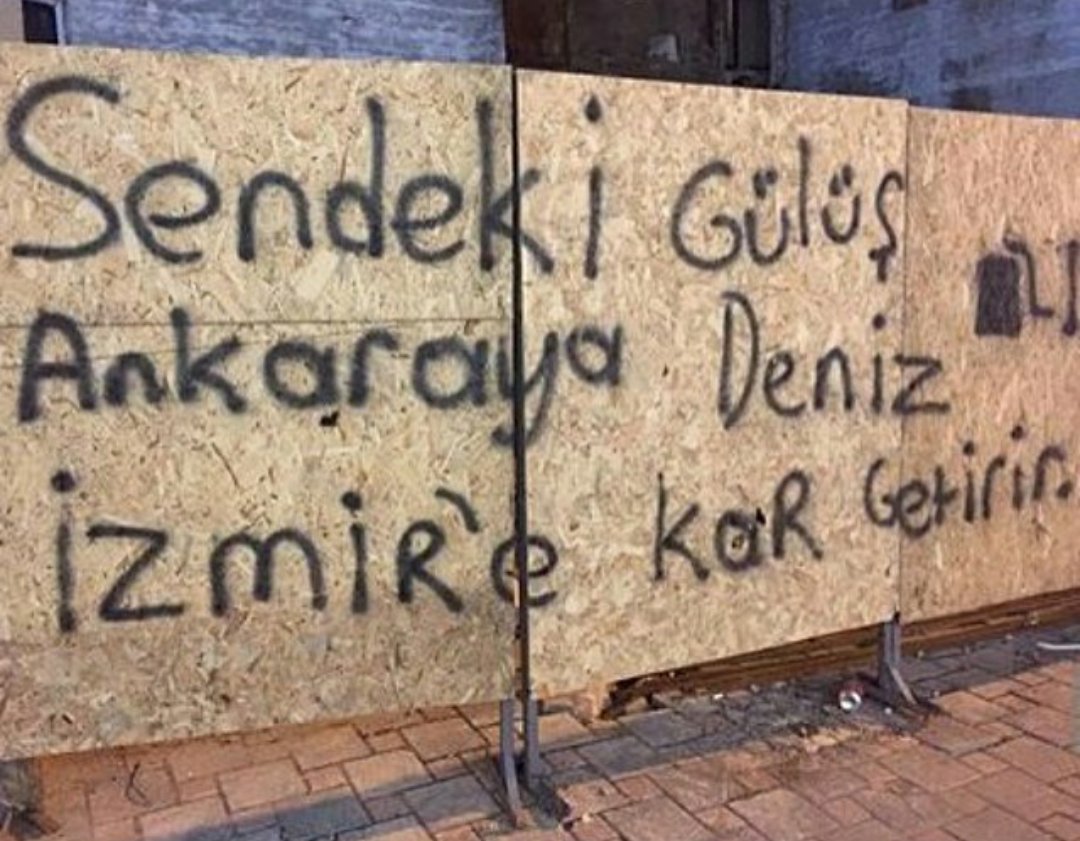 Sendeki Gülüş
Ankaraya Deniz
İzmir'e kaR Getirir.